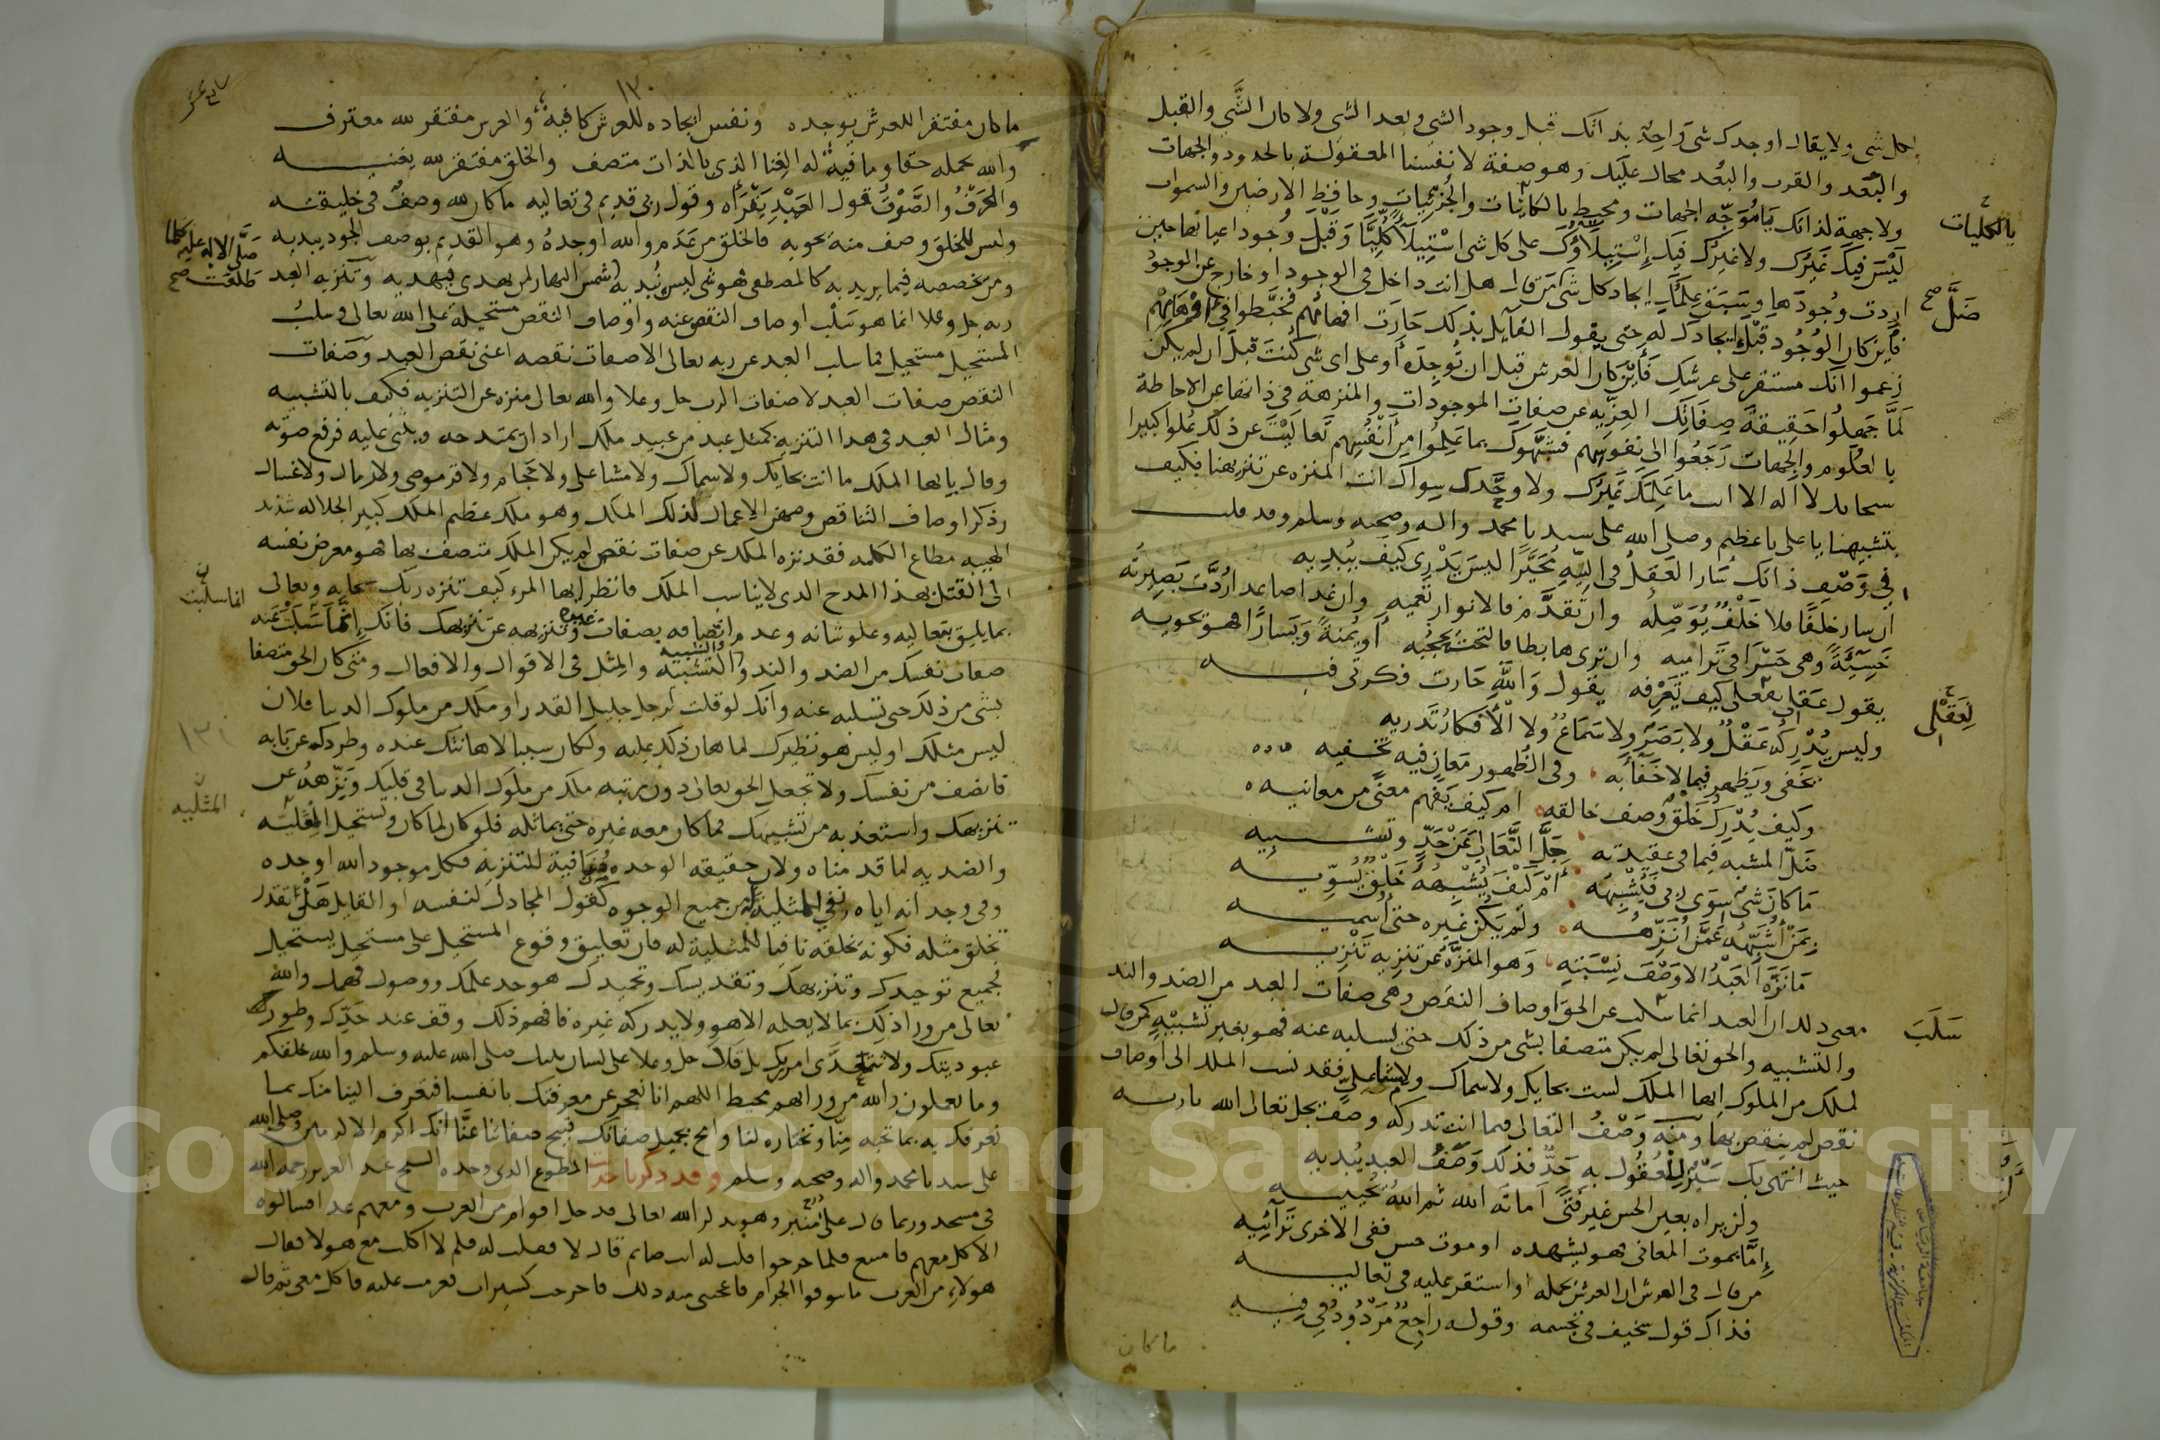 لكل شي ولا يقال اوجدك شي واحد بذ انك قبل وجود الشي وبعد الشي ولا كان الشي والقبل
والبعد والقرب والبعد محال عليك وهو صفة لانفسنا المعقولة بالحدود والجهات
ولا جهة لذاتك يا موجه الجهات ومحيط بالكائنات والجزئيات وحافظ الارضين والسموات
بالكليات
ليس فيك غيرك ولا غيرك فيك إستيلاؤك على كل شي استيلاء كليا وقبل وجود اعيانها حين
اردت وجودها وسبق علمك ايجاد كل شي من قال هل انت داخل في الوجود او خارج عن الوجود
ضل صح
فاين كان الوجود قبل ايجادك له حتى يقول القايل بذلك حارت افهامهم فخبطوا في اوهامهم
زعموا انك مستقر على عرشك فأين كان العرش قبل ان توجده أو على اى شي كنت قبل ان لم يكن
لما جهلوا حقيقة صفاتك العزيه عن صفات الموجودات والمنزهة في ذاتها عن الاحاطة
بالعلوم والجهات رجعوا الى نفوسهم فشبهوك بما علموا من أنفسهم تعاليت عن ذلك علوا كبيرا
سبحانك لا اله الا انت ما علمك غيرك ولا وحدك سواك انت المنزه عن تنزيهنا فكيف
بتشبيهنا يا على يا عظيم وصلى الله على سيدنا محمد واله وصحبه وسلم وقد قلت
في وصف ذاتك سار العقل في التيه تحيرا ليس يدرى كيف يبديه
ان سار خلفا فلا خلف يوصله وان تقدم فالانوار تعميه وان غدا صاعدا ردت بصيرته
خسيئة وهى حسرا في تراميه وان ترى هابطا فالتحت يحجبه أو يمنة ويسارا هو تحويه
يقول عقلي لعقلى كيف تعرفه يقول والله حارت فكرتى فيه
لعقلى
وليس يدركه عقل ولا بصر ولا سماع ولا الافكار تدريه
يخفى ويظهر فيما لا خفاء به وفى الظهور معان فيه تخفيه
وكيف يدرك خلق وصف خالقه ام كيف يفهم معنى من معانيه
ضل المشبه فيما في عقيدته جل التعالى عن حد وتشبيه
ما كان شي سوى ربى فيشبهه أم كيف يشبهه خلق يسويه
بمن أشبهه عمن أنزهه ولم يكن غيره حتى أسميه
ما نزه العبد الا وصف نسبته وهو المنزه عن تنزيه تنزيه
معنى ذلك ان العبد انما سلب عن الحق اوصاف النقص وهى صفات العبد من الضد والند
سلب
والتشبيه والحق تعالى لم يكن متصفا بشي من ذلك حتى تسلبه عنه فهو بغير تشبيه كمن قال
لملك من الملوك ايها الملك لست بحايك ولا سماك ولا مشاعلي فقد نسب الملك الى اوصاف
نقص لم ينقص بها ومنه وصف التعالى فيما انت تدركه وصف يجل تعالى الله باريه
حيث انتهى بك سير للعقول به حد فذلك وصف العبد يبديه
ولن يراه بعين الحس غير فتى اماته الله ثم الله يحييه
إما بموت المعانى فهو يشهده او موت حس ففى الاخرى ترائيه
من قال في العرش ان العرش يحمله او استقر عليه في تعاليه
فذاك قول سخيف في تجسمه وقوله راجع مردود في فيه
ما كان
١٣٠
ما كان مفتقرا للعرش يوجده ونفس ايجاده للعرش كافيه والعرش مفتقر لله معترف
والله يحمله حقا وما فيه له الغنا الذى بالذات متصف والخلق مفتقر لله يغنيه
والحرف والصوت قول العبد يقرأه وقول ربى قديم في تعاليه ما كان لله وصف في خليقته
وليس للخلق وصف منه يحويه فالخلق من عدم والله أوجده وهو القديم بوصف الجود يبديه
صلى الاله عليه كلما طلعت صح
ومن تخصصه فيما يريد به كالمصطفى فهو شي ليس نبديه شمس النهار لمن يهدى فيهديه وتنزيه العبد
ربه جل وعلا انما هو سلب اوصاف النقص عنه واوصاف النقص مستحيلة على الله تعالى وسلب
المستحيل مستحيل فما سلب العبد عن ربه تعالى الا صفات نقصه اعنى نقص العبد وصفات
النقص صفات العبد لا صفات الرب جل وعلا والله تعالى منزه عن التنزيه فكيف بالتشبيه
ومثال العبد في هذا التنزيه كمثل عبد من عبيد ملك اراد ان يمتدحه ويثنى عليه فرفع صوته
وقال يا ايها الملك ما انت بحايك ولا سماك ولا مشاعلى ولا حجام ولا قرموصى ولا رمال ولا غسال
وذكر اوصاف التناقص ومهن الاعمال لذلك الملك وهو ملك عظيم الملك كبير الجلالة شديد
الهيبه مطاع الكلمه فقد نزه الملك عن صفات نقص لم يكن الملك متصف بها فهو معرض نفسه
الى القتل بهذا المدح الذى لا يناسب الملك فانظر ايها المرء كيف تنزه ربك سبحانه وتعالى
بما يليق بتعاليه وعلو شانه وعدم اتصافه بصفات غيره وتنزيهه عن تنزيهك فانك إنما سلبت عنه
انما سلبت
صفات نفسك من الضد والند والتشبيه والمثل في الاقوال والافعال ومتى كان الحق متصفا
بشي من ذلك حتى تسلبه عنه وانك لو قلت لرجل جليل القدر او ملك من ملوك الدنيا فلان
ليس مثلك او ليس هو نظيرك لما هان ذلك عليه ولكان سببا لاهانتك عنده وطردك عن بابه
فانصف من نفسك ولا تجعل الحق تعالى دون مرتبة ملك من ملوك الدنيا في قلبك ونزهه عن
تنزيهك واستعذ به من تشبيهك فما كان معه غيره حتى يماثله فلو كان لما كان وتستحيل المثليه
المثليه
والضديه لما قدمناه ولان حقيقة الوحده منافية للتنزيه فكل موجود الله اوجده
وفى وجدانه اياه نفى المثلية من جميع الوجوه كقول المجادل لنفسه او القايل هل تقدر
تخلق مثله فكونه تخلقه نافيا للمثلية له فان تعليق وقوع المستحيل على مستحيل يستحيل
فجميع توحيدك وتنزيهك وتقديسك وتحميدك هو حد علمك ووصول فهمك والله
تعالى من وراء ذلك بما لا يعلمه الا هو ولا يدركه غيره فافهم ذلك وقف عند حدك وطورك
عبوديتك ولا تتعدى امر ربك بل قال جل وعلا على لسان نبيك صلى الله عليه وسلم والله خلقكم
وما تعملون والله من ورائهم محيط اللهم انا نعجز عن معرفتك بانفسنا فتعرف الينا منك بما
نعرفك به بما تحبه منا وتختاره لنا وامح بجميل صفاتك قبيح صفاتنا عنا انك اكرم الاكرمين وصلى الله
على سيدنا محمد واله وصحبه وسلم وقد ذكرنا المطوع الذى وحده الشيخ عبد العزيز رحمه الله
في مسجد وربما قال على منبر وهو يذكر الله تعالى فدخل اقوام من العرب ومعهم غدا فسالوه
الاكل معهم فامتنع فلما خرجوا قلت له انت صايم قال لا فقلت له فلم لا اكلت مع هولا فقال
هولاء من العرب ما يتوقوا الحرام فاعجبنى منه ذلك فاخرجت كسيرات فعزمت عليه فاكل معى ثم قال